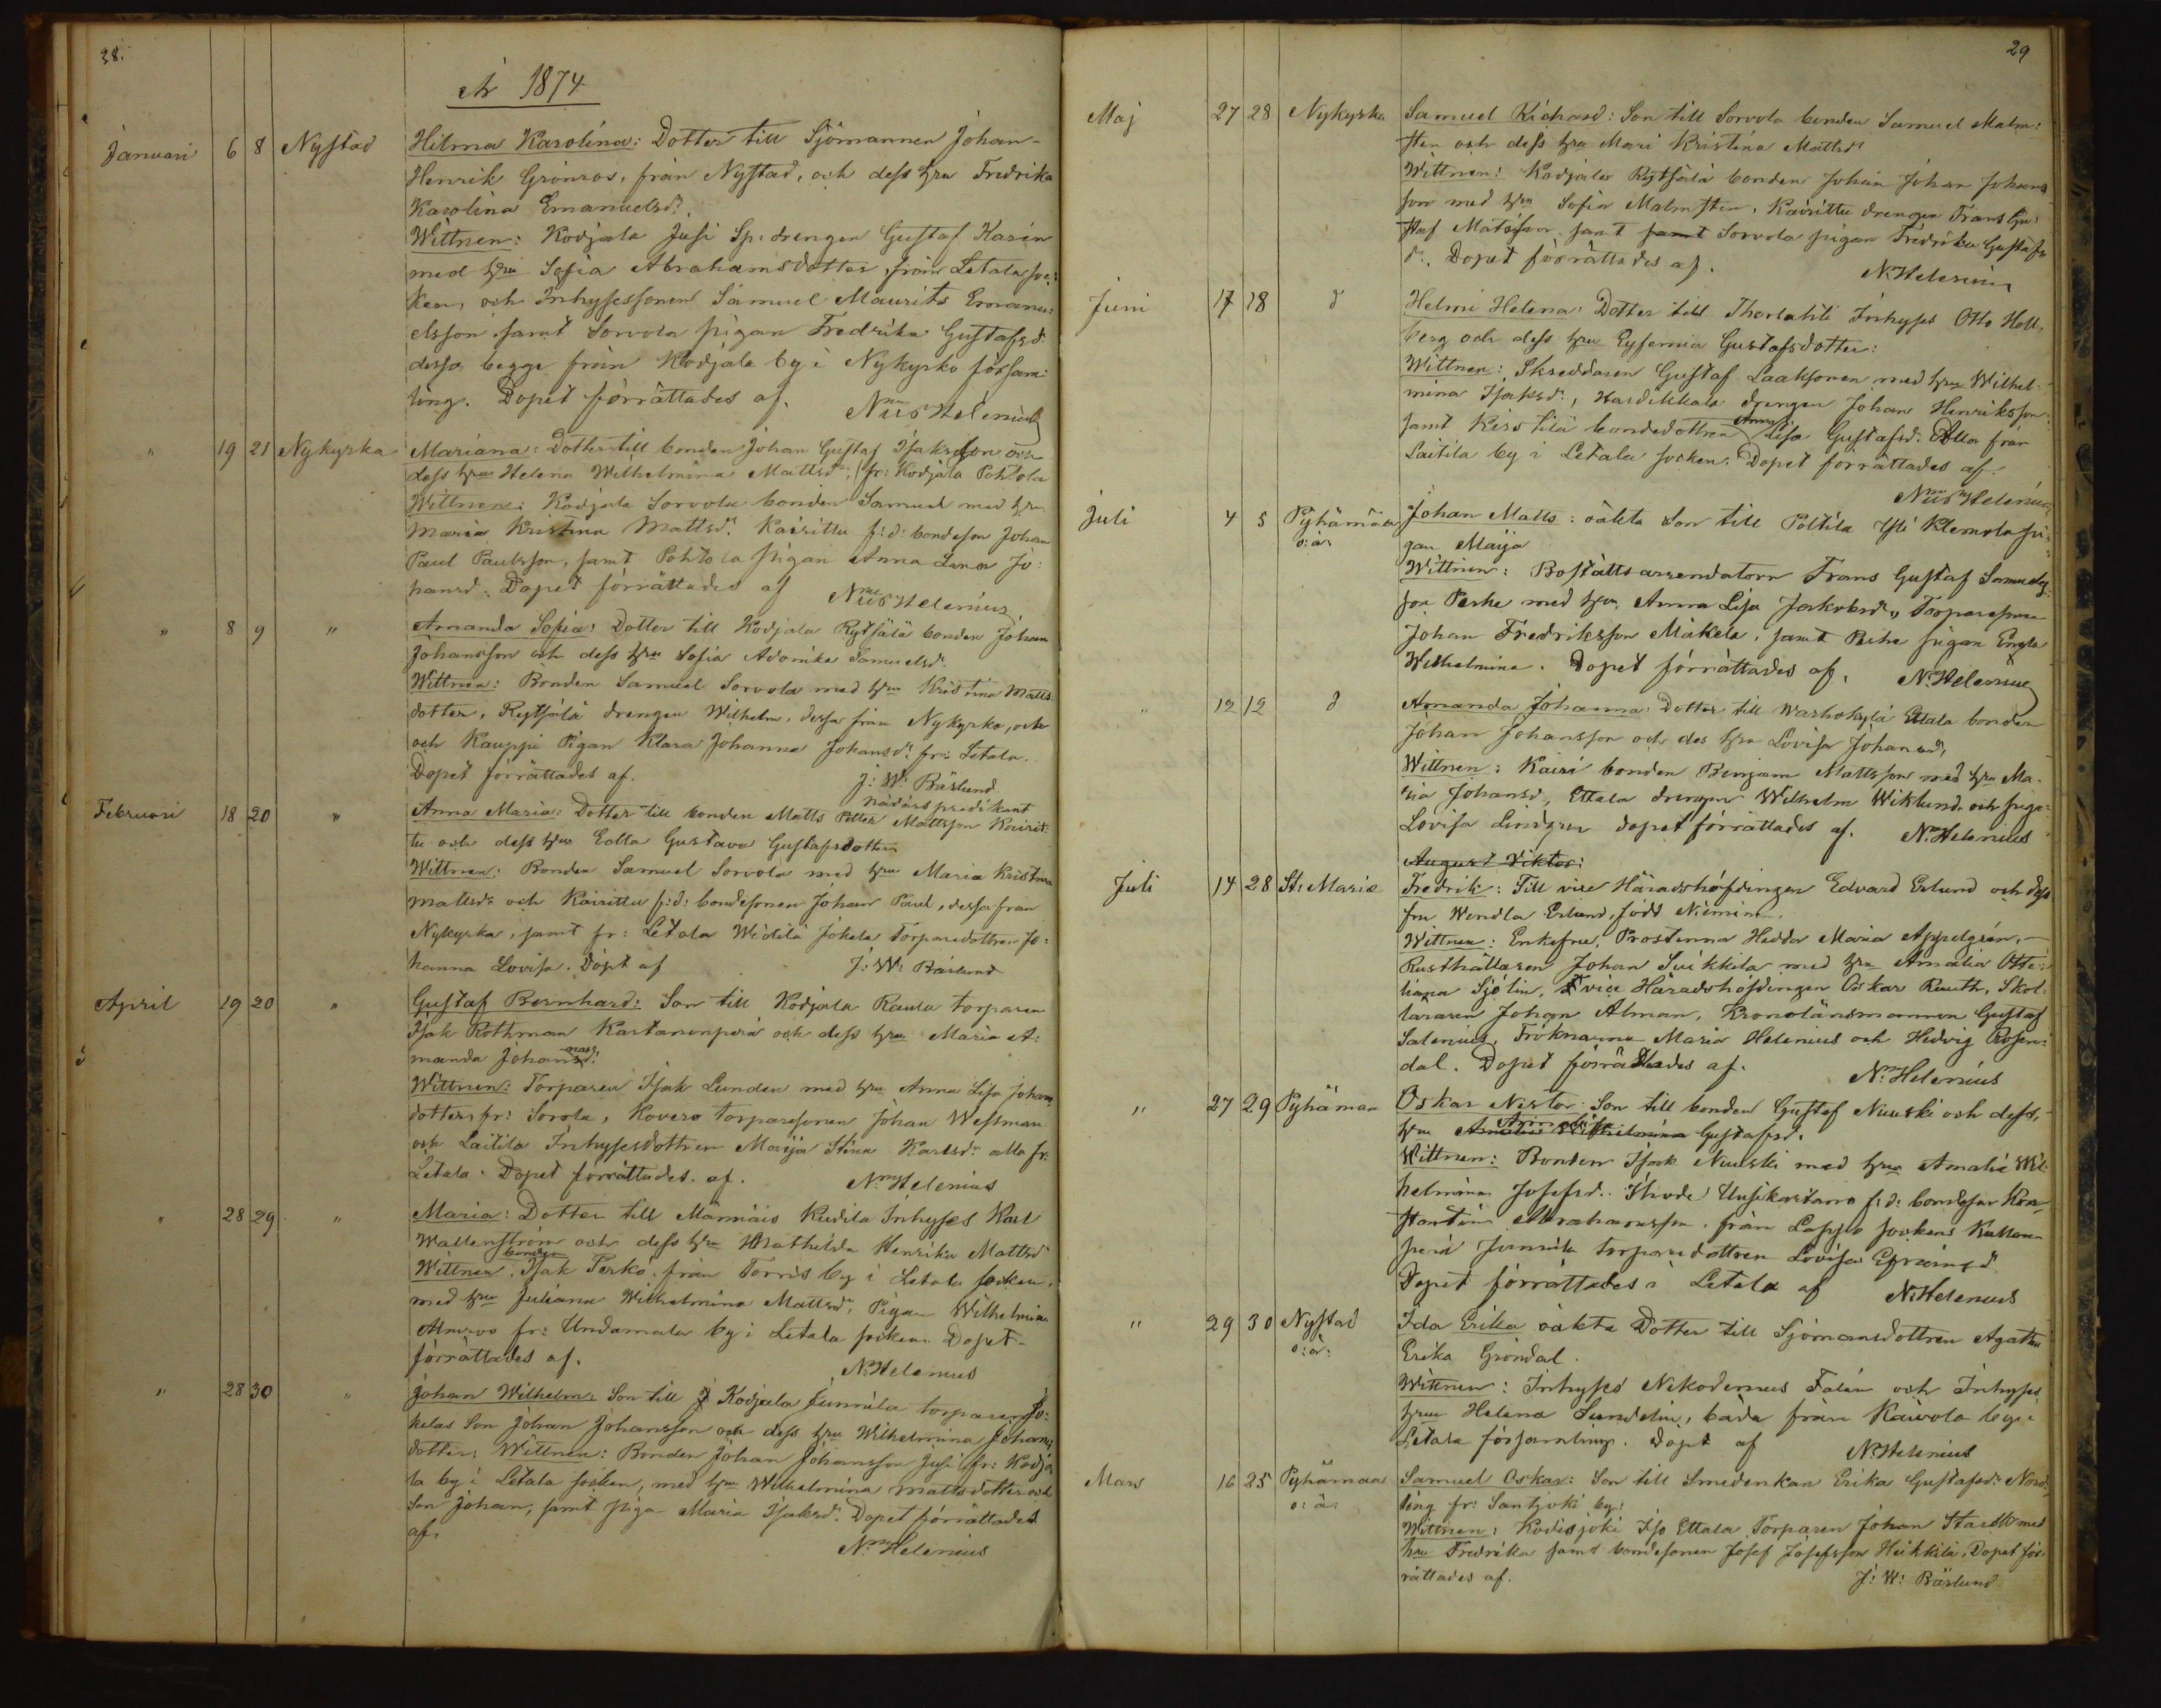 28.
År 1874
Januari 6 8 Nystad Hilma Karolina: Dotter till Sjömannen Johan-
Henrik Grönros, från Nystad, och dess hru Fredrika
Karolina Emanuelsd:
Wittnen: Kodjala Jusi Sp: drengen Gustaf Karin
med hru Sofia Abrahamsdotter, från Letala soc:
ken, och Inhysessonen Samuel Maurits Emanu:
elsson samt Sorvola pigan Fredrika Gustafsd:
dessa begge från Kodjala by i Nykyrko försam:
ling. Dopet förrättades af. Nils Helenius
" 19 21 Nykyrka Mariana: Dotter till bonden Johan Gustaf Isaksson och
dess hru Helena Wilhelmina Mattsdr, fr: Kodjala Pohtola
Wittnen: Kodjala Sorvola bonden Samuel med hru
Maria Kristina Mattsdr. Kairittu f:d: bondeson Johan
Paul Paulsson, samt Pohtola pigan Anna Lena Jo:
hansd: Dopet förrättades af Nils Helenius.
" 8 9 " Amanda Sofia: Dotter till Kodjala Rytsälä bonden Johan
Johansson och dess hru Sofia Adamika Samuelsd:
Wittnen: Bonden Samuel Sorvola med hru Kristina Matts:
dotter, Rytsälä drengen Wilhelm, dessa från Nykyrko, och
och Kauppi Pigan Klara Johanna Johansdr fr: Letala.
Dopet förrättades af. J: W: Bärlund
nådårspredikant
Februari 18 20 " Anna Maria: Dotter till bonden Matts Petter Mattsson Kairit:
tu och dess hru Edla Gustava Gustafsdotter
Wittnen: Bonden Samuel Sorvola med hru Maria Kristina
Mattsdr och Kairittu f:d: bondesonen Johan Paul, dessa från
Nykyrka, samt fr: Letala Widilä Jokela Torparedottren Jo:
hanna Lovisa. Döpt af J: W: Bärlund
April 19 20 " Gustaf Bernhard: Son till Kodjala Raula torparen
Isak Rothman Kartanonperä och dess hru Maria A:
manda Johansd:
Wittnen: Torparen Isak Lunden med hru Anna Lisa Johans
dotter, fr: Sorola, Kovero torparesonen Johan Westman
och Laitila Inhysesdottren Maija Stina Karlsdr alla fr:
Letala. Dopet förrättades af. N. Helenius
" 28 29 " Maria: Dotter till Männäis Kudila Inhyses Karl
Wallenström och dess hru Mathilda Henrika Mattsd
Wittnen, bonden Isak Perko från Torris by i Letala socken,
med hru Juliana Wilhelmina Mattsdr, Pigan Wilhelmina
Almroos fr: Undamala by i Letala socken. Dopet
förrättades af. N. Helenius
" 28 30 " Johan Wilhelm: Son till Kodjala Junnila torparen Jo:
kelas Son Johan Johansson och dess hru Wilhelmina Johans
dotter: Wittnen: Bonden Johan Johansson Jusi fr: Kodja
la by i Letala socken, med hru Wilhelmina Mattsdotter och
Son Johan, samt piga Maria Isaksd: Dopet förrättades
af. N. Helenius
29
Maj 27 28 Nykyrka Samuel Richard: Son till Sorvola bonden Samuel Malm:
sten och dess hru Mari Kristina Mattsdr
Wittnen: Kodjala Rytsälä bonden Johan Johan Johans
son med hru Sofia Malmsten, Kairittu drengen Frans Gu:
staf Matsson samt samt Sorvola pigan Fredrika Gustafs
d:. Dopet förrättades af. N. Helenius
Juni 17 18 d Helmi Helena: Dotter till Thorlahti Inhyses Otto Holl:
berg och dess hru Eufemia Gustafsdotter:
Wittnen: Skreddaren Gustaf Laaksonen med hru Wilhel:
mina Isaksdr, Hardikkala drengen Johan Henriksson
samt Kirstilä bondedottren Anna Lisa Gustafsd: Alla från
Laitila by i Letala socken. Dopet förrättades af.
Nils Helenius
Juli 4 5 Pyhämaa Johan Matts: oäkta Son till Poltila Yli Klemola pi:
o: ä: gan Maija
Wittnen: Boställsarrendatorn Frans Gustaf Samuels
son Perke med hru Anna Lisa Jakobsdr, Torparesonen
Johan Fredriksson Mäkelä, samt Perke pigan Engla
Wilhelmina. Dopet förrättades af. N. Helenius
" 12 12 d Amanda Johanna: Dotter till Warhokylä Ettala bonden
Johan Johansson och des hru Lovisa Johansd,
Wittnen: Kairi bonden Benjam Mattsson med hru Ma:
ria Johansd, Ettala drengen Wilhelm Wiklund och piga
Lovisa Lindgren dopet förrättades af. N. Helenius
August Viktor:
Juli 14 28 St: Marie Fredrik: Till vice Häradshöfdingen Edvard Erlund och dess
fru Wendla Erlund, född Nieminen.
Wittnen: Enkefru, Prostinna Hedda Maria Appelgrén,
Rusthållaren Johan Suikkila med hru Amalia Otte:
liana Sjölin, vice Häradshöfdingen Oskar Rauth, Skol:
läraren Johan Alman, Kronolänsmannen Gustaf
Salenius, Fröknarna Maria Helenius och Hedvig Rosen:
dal. Dopet förrättades af. N. Helenius
" 27 29 Pyhämaa Oskar Nestor: Son till bonden Gustaf Nuuski och dess,
hru Amalia Wilhelmina Gustafsd.
Wittnen: Bonden Isak Nuuski med hru Amalia Wil:
helmina Josefsd. Ihode Uusikartano f:d: bondeson Kon:
stantin Abrahamsson, från Lappi sockens Kullan:
perä Junnila torparedottren Lovisa Efraimsd
Dopet förrättades i Letala af N. Helenius
" 29 30 Nystad Ida Erika oäkta Dotter till Sjömansdottren Agatha
o: ä: Erika Gröndal.
Wittnen: Inhyses Nikodemus Falén och Inhyses
hru Helena Sundelin, båda från Kaivola by i
Letala församling. Döpt af N. Helenius
Mars 16 25 Pyhämaa Samuel Oskar: Son till Smedenkan Erika Gustafsdr Nord:
o: ä: ling fr: Santjoki by:
Wittnen: Kodisjoki Iso Ettala Torparen Johan Stark med
hru Fredrika samt bondesonen Josef Josefsson Heikkilä. Dopet för:
rättades af. J: W: Bärlund